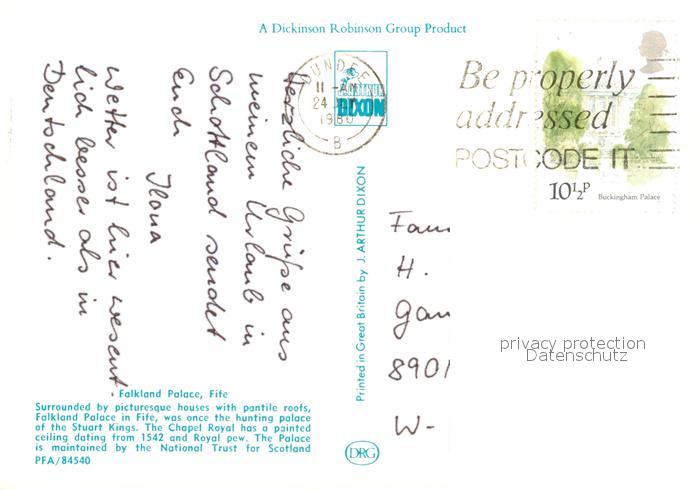 A Dickinson Robinson Group Product
Herzliche Grüße aus
meinem Urlaub in
Schottland sendet
Euch
Ilona
Wetter ist hier wesent-
lich besser als in
Deutschland.
Falkland Palace, Fife
Surrounded by picturesque houses with pantile roofs,
Falkland Palace in Fife, was once the hunting palace
of the Stuart Kings. The Chapel Royal has a painted
ceiling dating from 1542 and Royal pew. The Palace
is maintained by the National Trust for Scotland
PFA/84540
Printed in Great Britain by J. ARTHUR DIXON
J. ARTHUR
DIXON
DRG
DUNDEE
11 - AM
24
1980
B
Be properly
addressed
POSTCODE IT
10½P Buckingham Palace
Fam
H.
8901
W-
privacy protection
Datenschutz